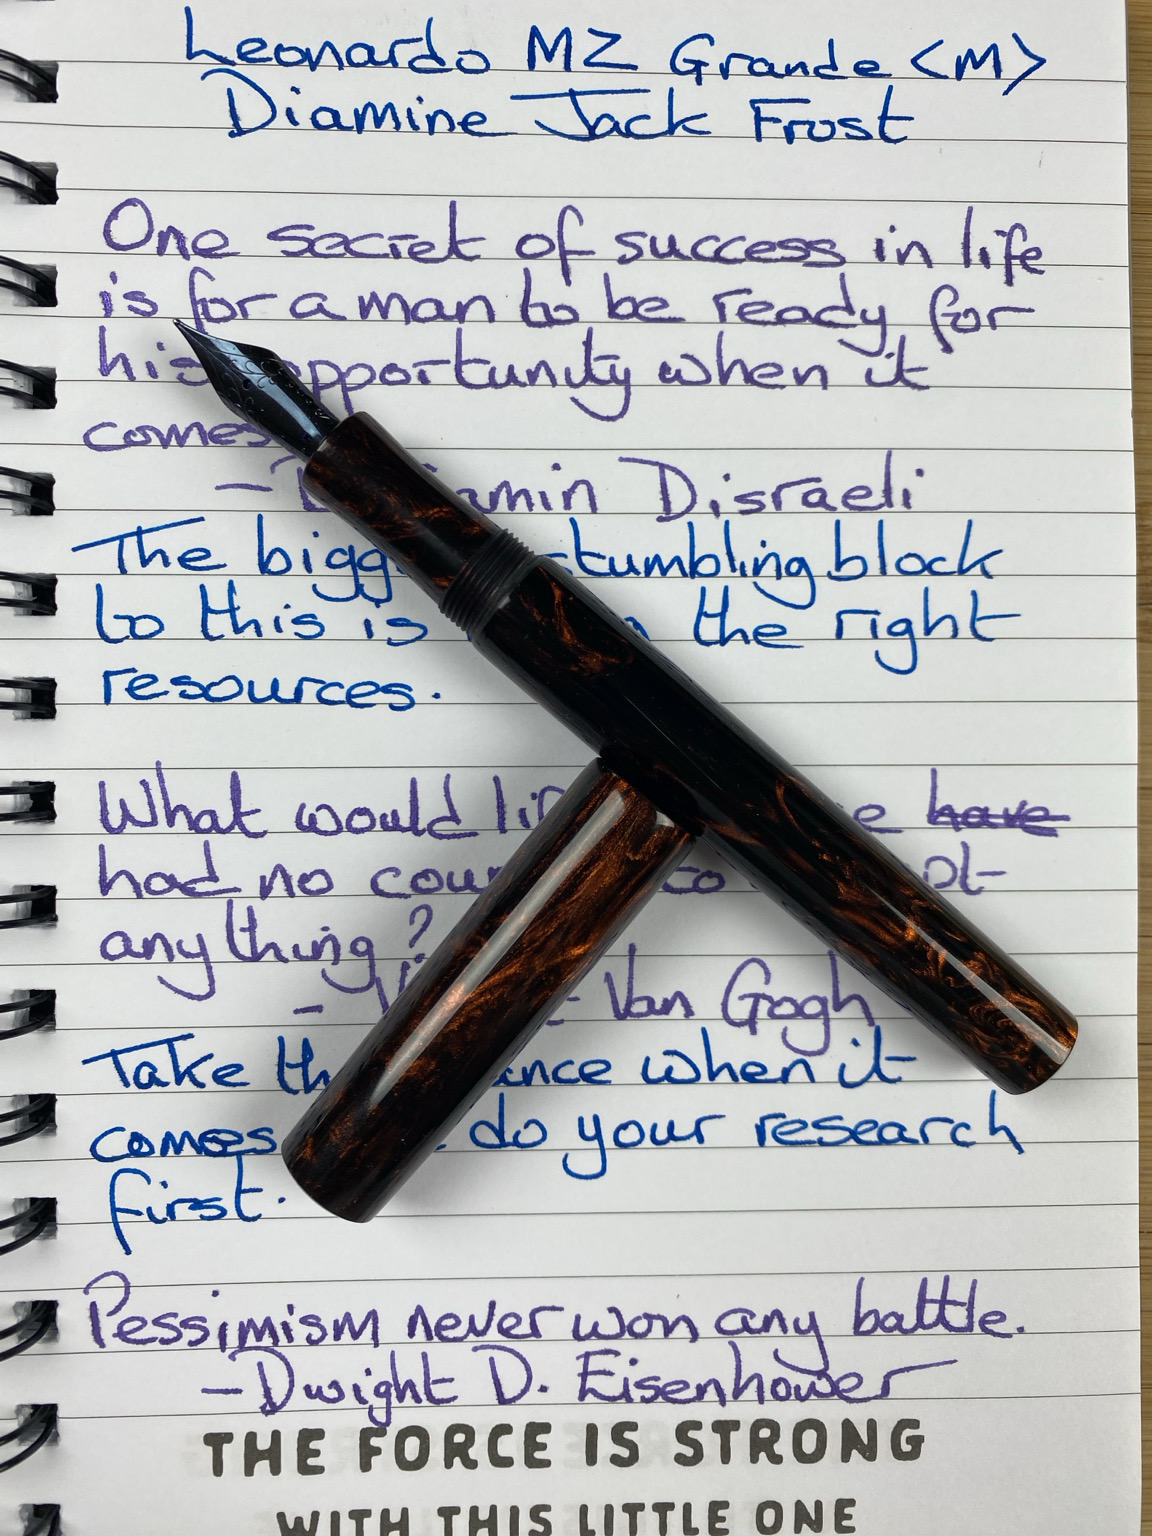 Leonardo MZ Grande <M>
Diamine Jack Frost
One secret of success in life
is for a man to be ready for
his opportunity when it
comes
- Disraeli
The stumbling block
to this is the right
resources.
What would life have
had no
anything?
- Van Gogh
Take when it
comes do your research
first.
Pessimism never won any battle.
- Dwight D. Eisenhower
THE FORCE IS STRONG
WITH THIS LITTLE ONE